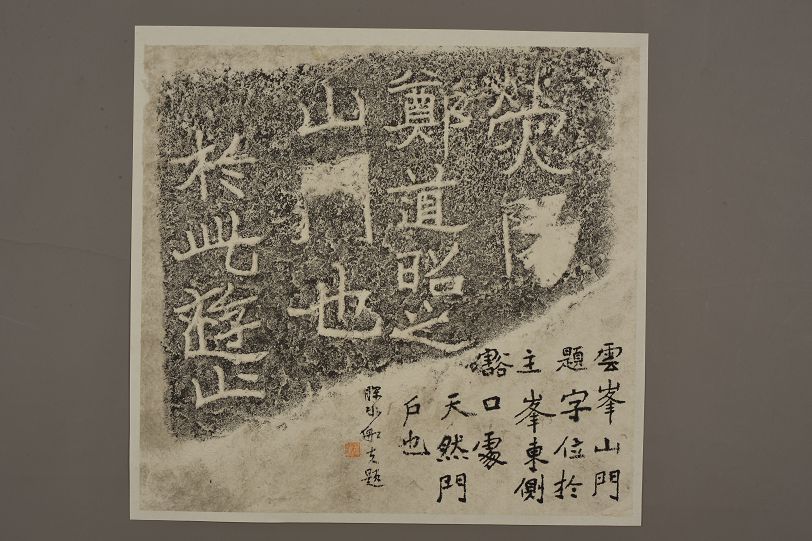 滎陽
鄭道昭之
山門也
於此遊止
雲峯山門
題字位於
主峯東側
豁口處
天然門
戶也